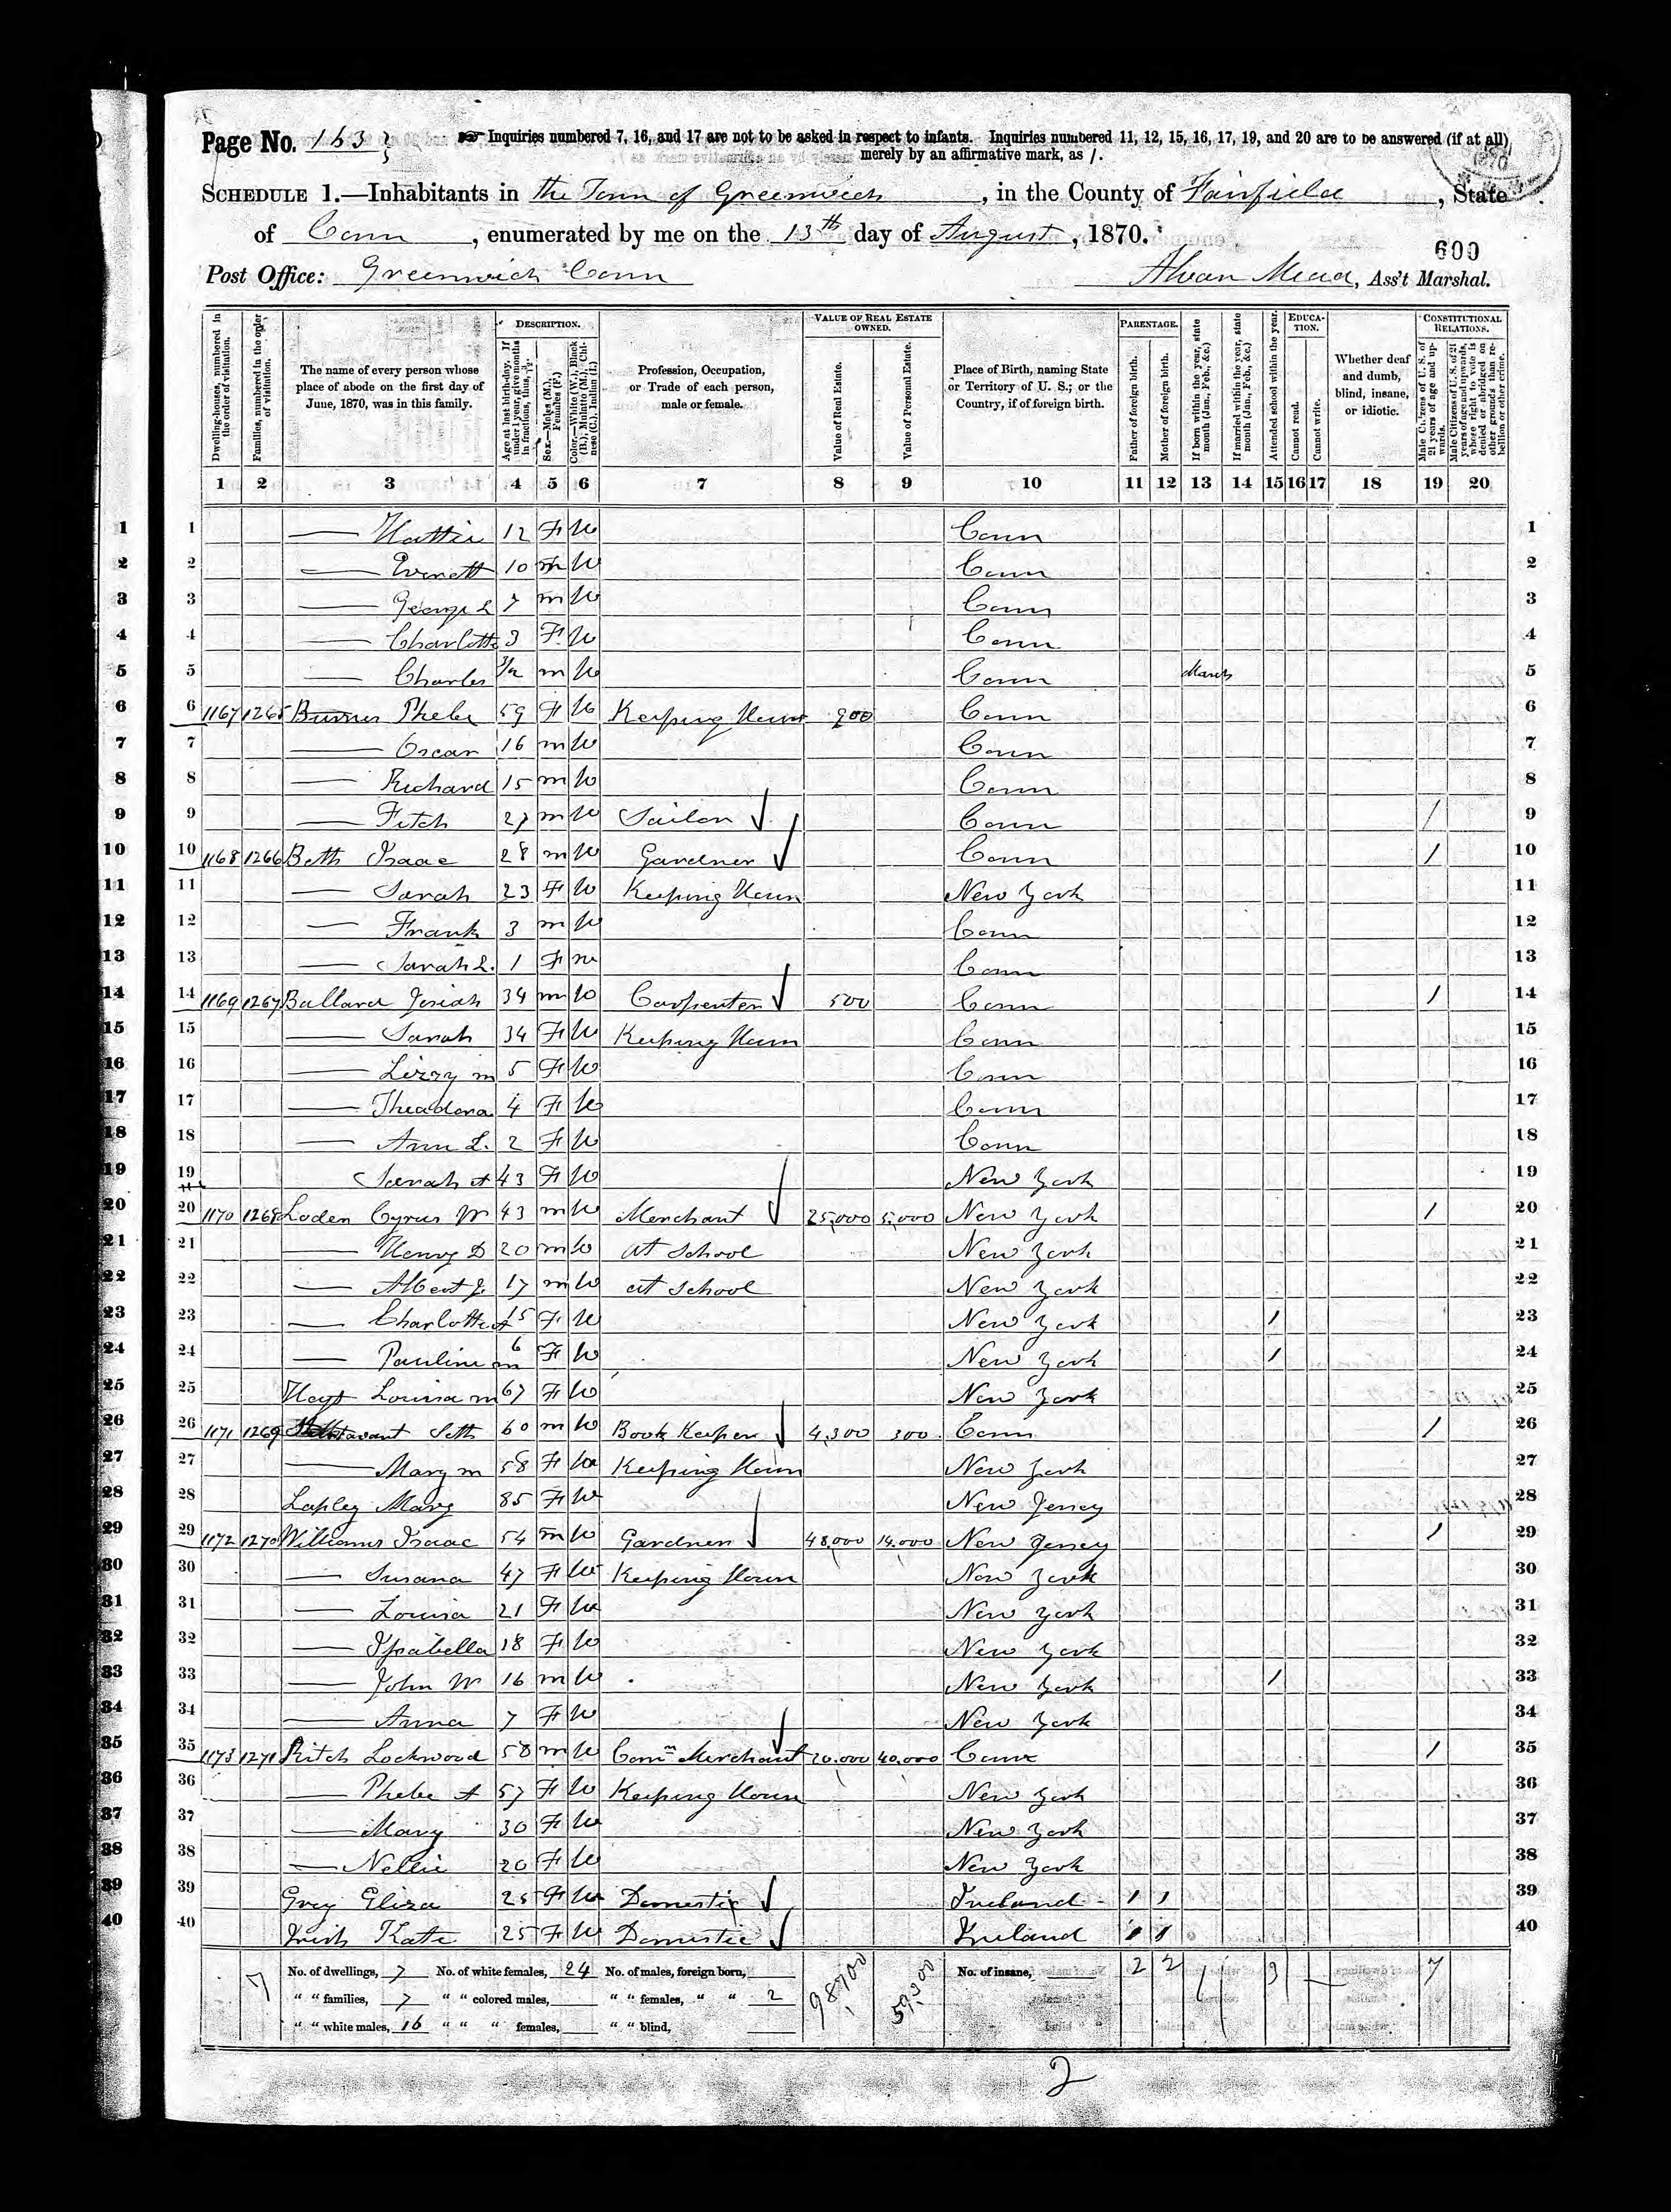 Page No. 163
Inquiries numbered 7, 16, and 17 are not to be asked in respect to infants. Inquiries numbered 11, 12, 15, 16, 17, 19, and 20 are to be answered (if at all)
merely by an affirmative mark, as /.
SCHEDULE 1.—Inhabitants in the Town of Greenwich, in the County of Fairfield, State
of Conn, enumerated by me on the 13th day of August, 1870.
600
Post Office: Greenwich Conn
Alvan Mead, Ass't Marshal.
Dwelling-houses, numbered in the order of visitation.
Families, numbered in the order of visitation.
The name of every person whose place of abode on the first day of June, 1870, was in this family.
DESCRIPTION.
Age at last birth-day. If under 1 year, give months in fractions, thus, 3/12.
Sex.—Males (M.), Females (F.)
Color.—White (W.), Black (B.), Mulatto (M.), Chinese (C.), Indian (I.)
Profession, Occupation, or Trade of each person, male or female.
VALUE OF REAL ESTATE OWNED.
Value of Real Estate.
Value of Personal Estate.
Place of Birth, naming State or Territory of U. S.; or the Country, if of foreign birth.
PARENTAGE.
Father of foreign birth.
Mother of foreign birth.
If born within the year, state month (Jan., Feb., &c.)
If married within the year, state month (Jan., Feb., &c.)
Attended school within the year.
EDUCATION.
Cannot read.
Cannot write.
Whether deaf and dumb, blind, insane, or idiotic.
CONSTITUTIONAL RELATIONS.
Male Citizens of U. S. of 21 years of age and upwards.
Male Citizens of U. S. of 21 years of age and upwards, where right to vote is denied or abridged on other grounds than rebellion or other crime.
1 2 3 4 5 6 7 8 9 10 11 12 13 14 15 16 17 18 19 20
1 1 — Hattie 12 F W Conn 1
2 2 — Everett 10 m W Conn 2
3 3 — George L 7 m W Conn 3
4 4 — Charlotte 3 F W Conn 4
5 5 — Charles 3/12 m W Conn March 5
6 6 1167 1265 Phebe 59 F W Keeping House 900 Conn 6
7 7 — Oscar 16 m W Conn 7
8 8 — Richard 15 m W Conn 8
9 9 — Fitch 27 m W Sailor Conn / 9
10 10 1168 1266 Betts Isaac 28 m W Gardner Conn / 10
11 11 — Sarah 23 F W Keeping House New York 11
12 12 — Frank 3 m W Conn 12
13 13 — Sarah L. 1 F W Conn 13
14 14 1169 1267 Ballard Josiah 34 m W Carpenter 500 Conn / 14
15 15 — Sarah 34 F W Keeping House Conn 15
16 16 — Lizzy m 5 F W Conn 16
17 17 — Theadora 4 F W Conn 17
18 18 — Ann L. 2 F W Conn 18
19 19 Sarah A 43 F W New York 19
20 20 1170 1268 Loden Cyrus W 43 m W Merchant 25,000 5,000 New York / 20
21 21 — Henry D 20 m W at School New York 21
22 22 — Albert J. 17 m W at School New York 22
23 23 — Charlotte A 15 F W New York / 23
24 24 — Pauline m 6 F W New York / 24
25 25 Hoyt Louisa m 67 F W New York 25
26 26 1171 1269 Seth 60 m W Book Keeper 4,300 300 Conn / 26
27 27 — Mary m 58 F W Keeping House New York 27
28 28 Lapley Mary 85 F W New Jersey 28
29 29 1172 1270 Williams Isaac 54 m W Gardner 48,000 14,000 New Jersey / 29
30 30 — Susana 47 F W Keeping House New York 30
31 31 — Louisa 21 F W New York 31
32 32 — Isabella 18 F W New York 32
33 33 — John W 16 m W New York / 33
34 34 — Anna 7 F W New York 34
35 35 1173 1271 Ritch Lockwood 58 m W Comn Merchant 20,000 40,000 Conn / 35
36 36 — Phebe A 57 F W Keeping House New York 36
37 37 — Mary 30 F W New York 37
38 38 — Nellie 20 F W New York 38
39 39 Grey Eliza 25 F W Domestic Ireland / / 39
40 40 Kate 25 F W Domestic Ireland / / 40
No. of dwellings, 7 No. of white females, 24 No. of males, foreign born, No. of insane,
" " families, 7 " " colored males, " " females, " " 2
" " white males, 16 " " " females, " " blind,
7 98700 59,300 2 2 1 3 7
2